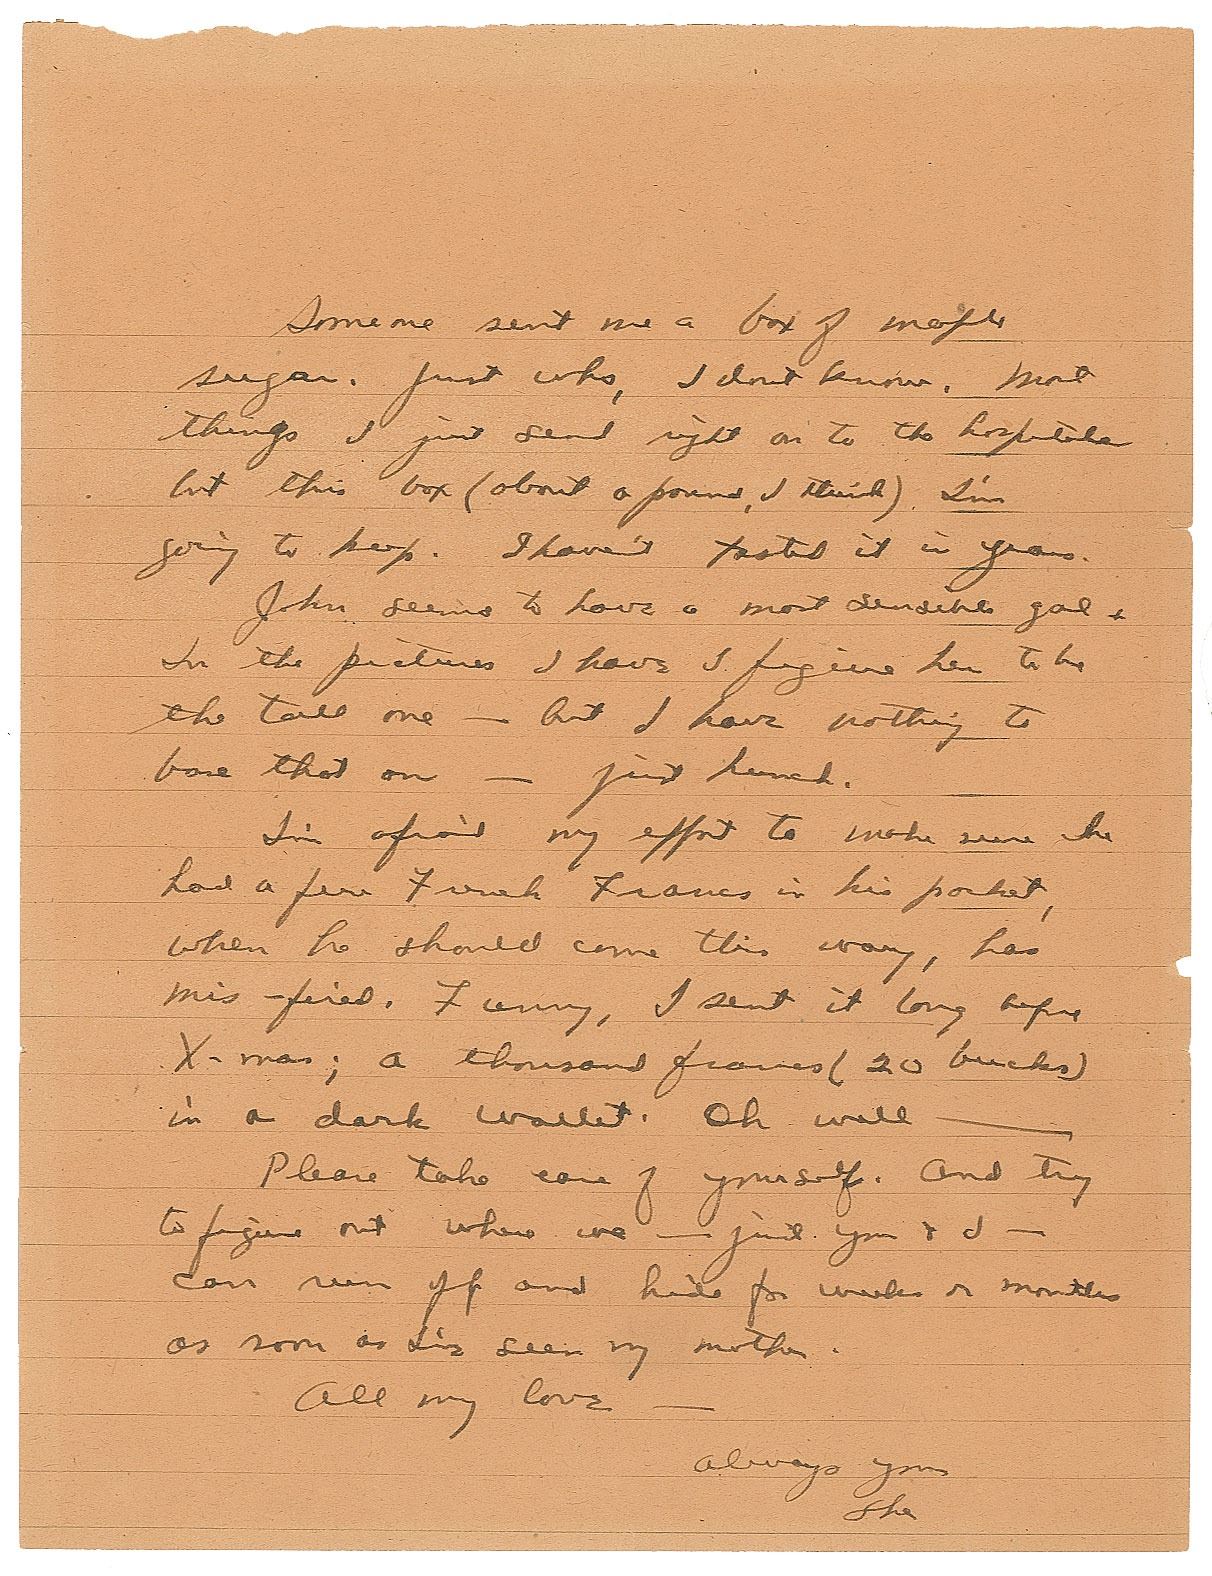 Someone sent me a box of maple
sugar. Just who, I dont know. Most
things I just send right on to the hospitals
but this box (about a pound, I think) I'm
going to keep. I haven't tasted it in years.
John seems to have a most sensible gal.
In the pictures I have I figure her to be
the tall one — but I have nothing to
base that on — just hunch.
I'm afraid my effort to make sure he
had a few French Francs in his pocket,
when he should come this way, has
mis-fired. Funny, I sent it long before
X-mas; a thousand francs (20 bucks)
in a dark wallet. Oh well —
Please take care of yourself. And try
to figure out where we — just you & I —
can run off and hide for weeks or months
as soon as I've seen my mother.
All my love —
always your